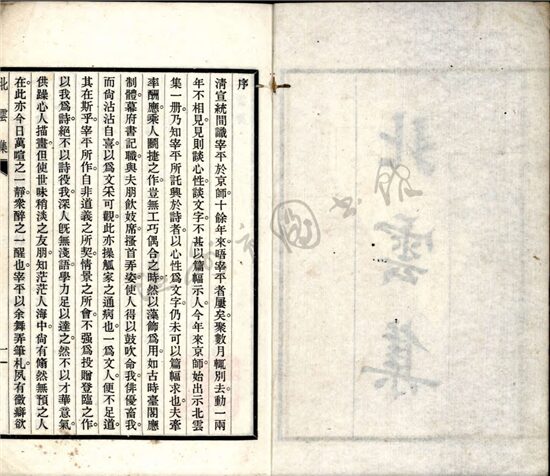 序
清宣統間識宰平於京師十餘年來晤宰平者屢矣聚數月輒別去動一兩
年不相見見則談心性談文字不甚以篇幅示人今年來京師始出示北雲
集一册乃知宰平所託興於詩者以心性爲文字仍未可以篇幅求也夫牽
率酬應乘人鬭捷之作豈無工巧偶合之時然以藻飾爲用如古時臺閣應
制體幕府書記職與夫朋飲妓席搔首弄姿使人得以鼓吹命我俳優畜我
而尚沾沾自喜以爲文采可觀此亦操觚家之通病也一爲文人便不足道
其在斯乎宰平所作自非道義之所契情景之所會不强爲投贈登臨之作
以我爲詩絕不以詩役我深人旣無淺語學力足以達之然不以才華意氣
供躁心人描畫但使世味稍淡之友朋知茫茫人海中尙有翛然無預之人
在此亦今日萬喧之一靜衆醉之一醒也宰平以余舞弄筆札夙有徵癖欲
北雲集
一
北雲集